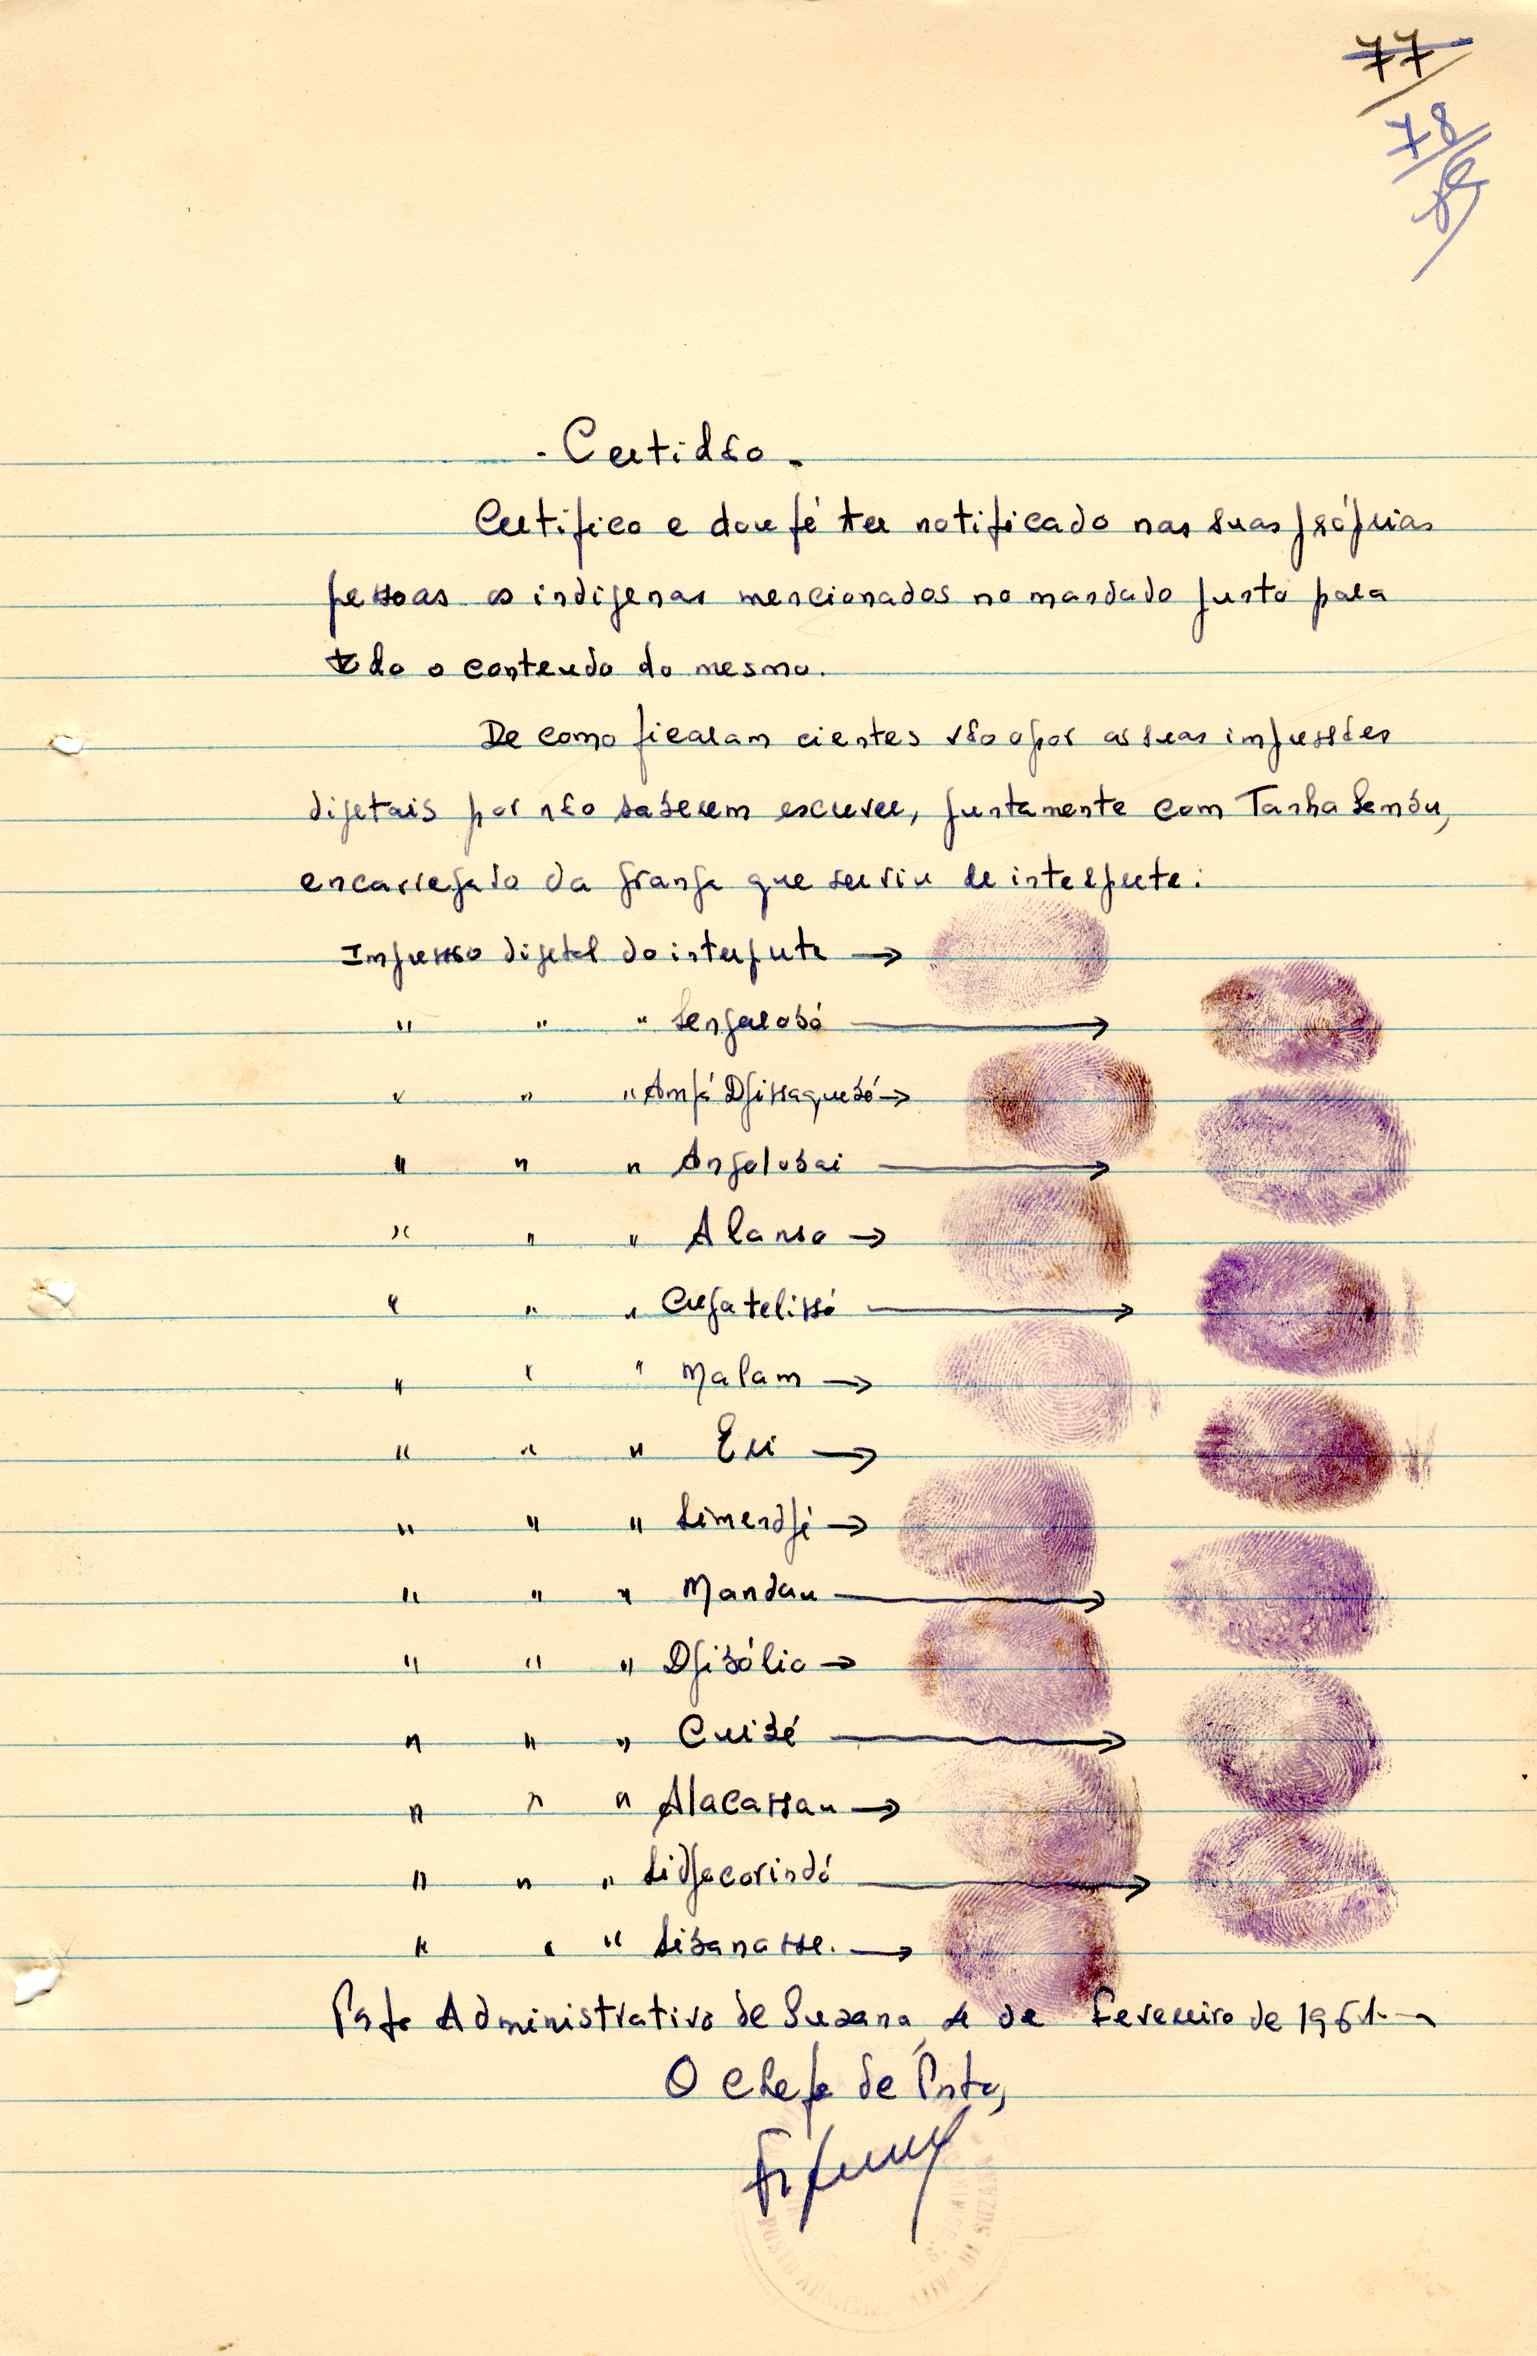 77
78
- Certidão -
Certifico e dou fé ter notificado nas suas próprias
pessoas os indigenas mencionados no mandado junto para
todo o conteudo do mesmo.
De como ficaram cientes vão apor as suas impressões
digetais por não saberem escrever, juntamente com Tanha Sambu,
encarregado da granja que serviu de interprete:
Impressão digetal do interprete →
" " " Sengalobó →
" " " Ampá Djissaquebó →
" " " Angolobai →
" " " Alanso →
" " " Cupatelissó →
" " " Malam →
" " " Eri →
" " " Simendjé →
" " " Mandau →
" " " Djibólio →
" " " Cuibé →
" " " Alacassau →
" " " Sidjacorindó →
" " " Sibanasse. →
Posto Administrativo de Suzana, 4 de Fevereiro de 1961.-
O Chefe de Posto,